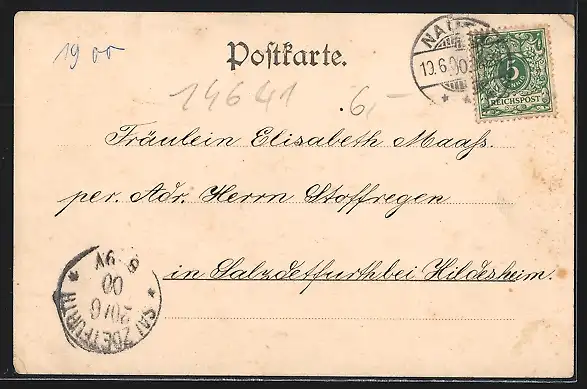 1900
Postkarte.
10.6.00.
5
REICHSPOST
14641
6,-
Fräulein Elisabeth Maaß.
per. Adr. Herrn Stoffregen
in Salzdetfurth bei Hildesheim.
SALZDETFURTH
00